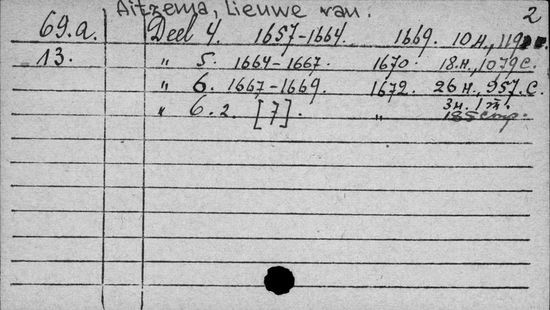 Aitzema, Lieuwe van. 2
69.a. Deel 4. 1657-1664. 1669. 10 н., 119
13. " 5. 1664-1667. 1670. 18.н., 1079 с.
" 6. 1667-1669. 1672. 26 н., 957. с.
" 6. 2. [7]. " 3н. 1 т.
185 стр.